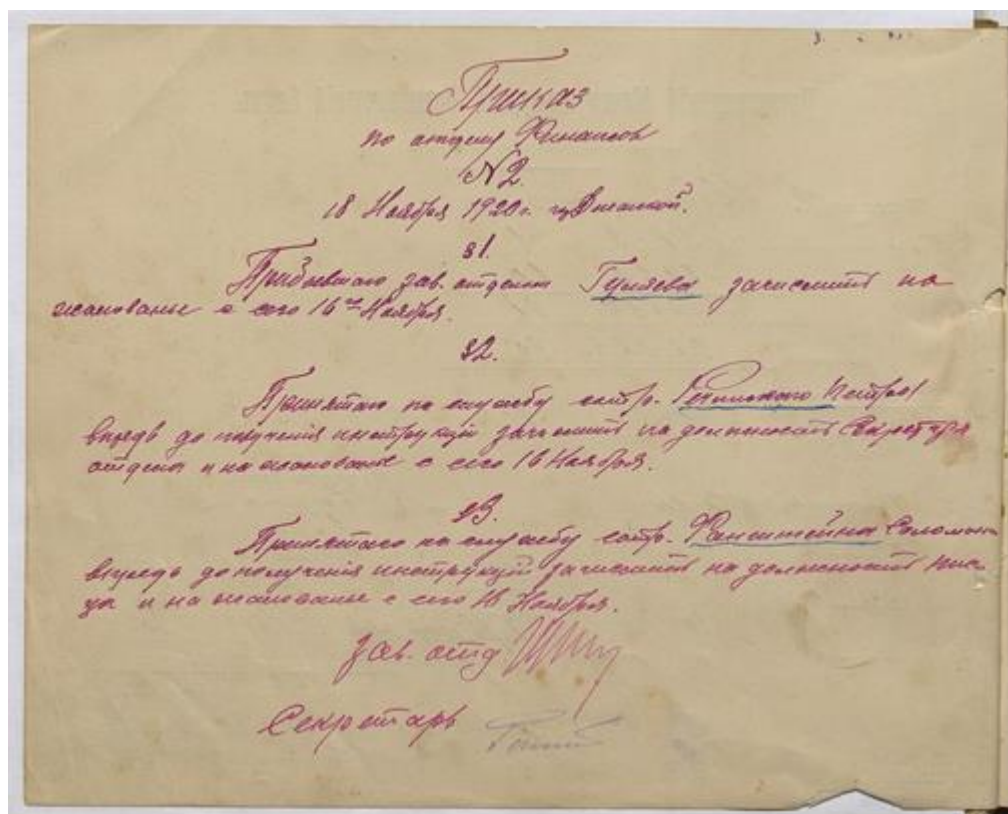 Приказ
по отделу Финансов
№ 2.
18 Ноября 1920 г. гор. Джанкой.
§1.
Прибывшаго зав. отделом Гуляева зачислить на
жалованье с сего 16го Ноября.
§2.
Принятаго на службу сотр.
впредь до получения инструкций зачислить на должность Секретаря
отдела и на жалованье с сего 16 Ноября.
§3.
Принятаго на службу сотр. Файнштейна Соломона
впредь до получения инструкций зачислить на должность пис-
ца и на жалованье с сего 18 Ноября.
Зав. отд
Секретарь